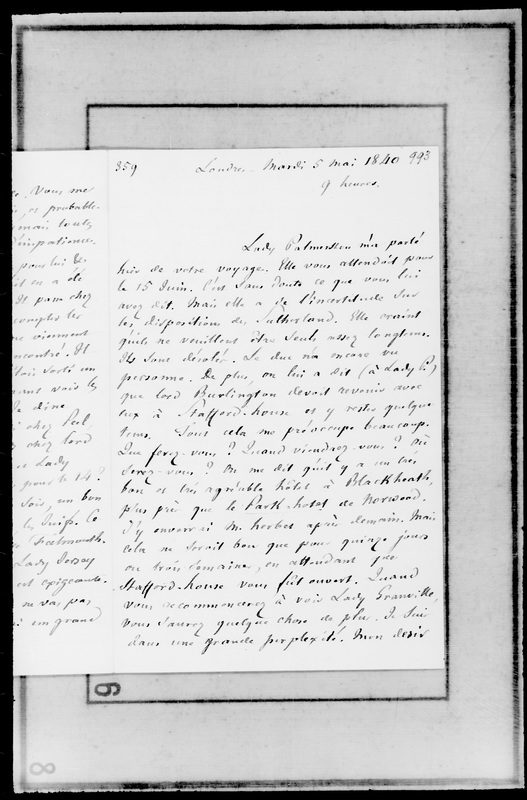 359 Londres - Mardi 5 Mai 1840 993
9 heures.
Lady Palmerston m'a parlé
hier de votre voyage. Elle vous attendoit pour
le 15 Juin. C'est sans doute ce que vous lui
avez dit. Mais elle a de l'incertitude sur
les dispositions des Sutherland. Elle craint
qu'ils ne veuillent être seuls assez longtems.
Ils sont désolés. Le duc n'a encore vu
personne. De plus, on lui a dit (à Lady P.)
que lord Burlington devoit revenir avec
eux à Stafford-house et y rester quelque
tems. Tout cela me préoccupe beaucoup.
Que ferez-vous ? Quand viendrez-vous ? Où
serez-vous ? On me dit qu'il y a un très
bon et très agréable hôtel à Blackheath,
plus près que le Park-hotel de Norwood.
J'y enverrai M. Herbet après demain. Mais
cela ne seroit bon que pour quinze jours
ou trois semaines, en attendant que
Stafford-house vous fût ouvert. Quand
vous recommencerez à voir Lady Granville,
vous saurez quelque chose de plus. Je suis
dans une grande perplexité. Mon desir
vous me
probable-
mais toute
impatience.
pour lui de
il en a été
Et pam chez
compte les
ne viennent
encontré. Il
sorti un
vois le
Je dine
chez Peel
chez lord
Lady
pour le 14 ?
un bon
les Juifs. Ce
Falmouth.
Lady Jersey
est exigeante.
ne vas pas
un grand
6
8